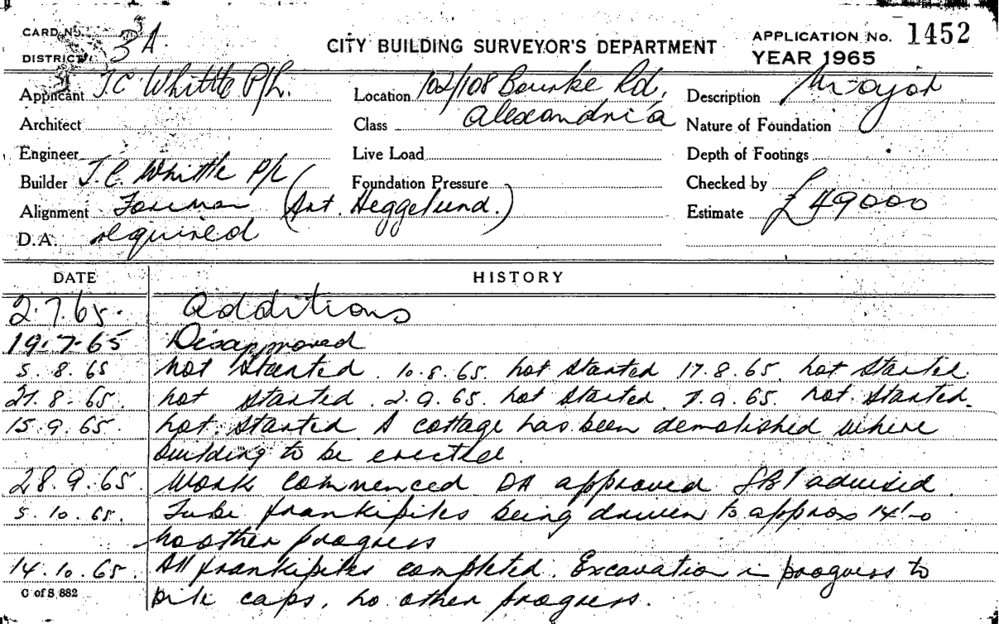 CARD No.
DISTRICT 3A
CITY BUILDING SURVEYOR'S DEPARTMENT
APPLICATION No. 1452
YEAR 1965
Applicant J.C. Whittle P/L.
Location 102/108 Bourke Rd,
Alexandria
Description
Architect
Class
Nature of Foundation
Engineer
Live Load
Depth of Footings
Builder J.C. Whittle P/L
Foundation Pressure
Checked by
Alignment Foreman (Ant. Heggelund.)
Estimate £49000
D.A. required
DATE HISTORY
2.7.65. Additions
19.7.65 Disapproved
5.8.65 not started. 10.8.65. not started 17.8.65. not started
27.8.65. not started. 2.9.65. not started. 7.9.65. not started.
15.9.65. not started. A cottage has been demolished where
building to be erected.
28.9.65. Work commenced DA approved advised.
5.10.65. frankipiles being driven to approx 14'-0
No other progress
14.10.65. All frankipiles completed. Excavation in progress to
pile caps. no other progress.
C of S 882